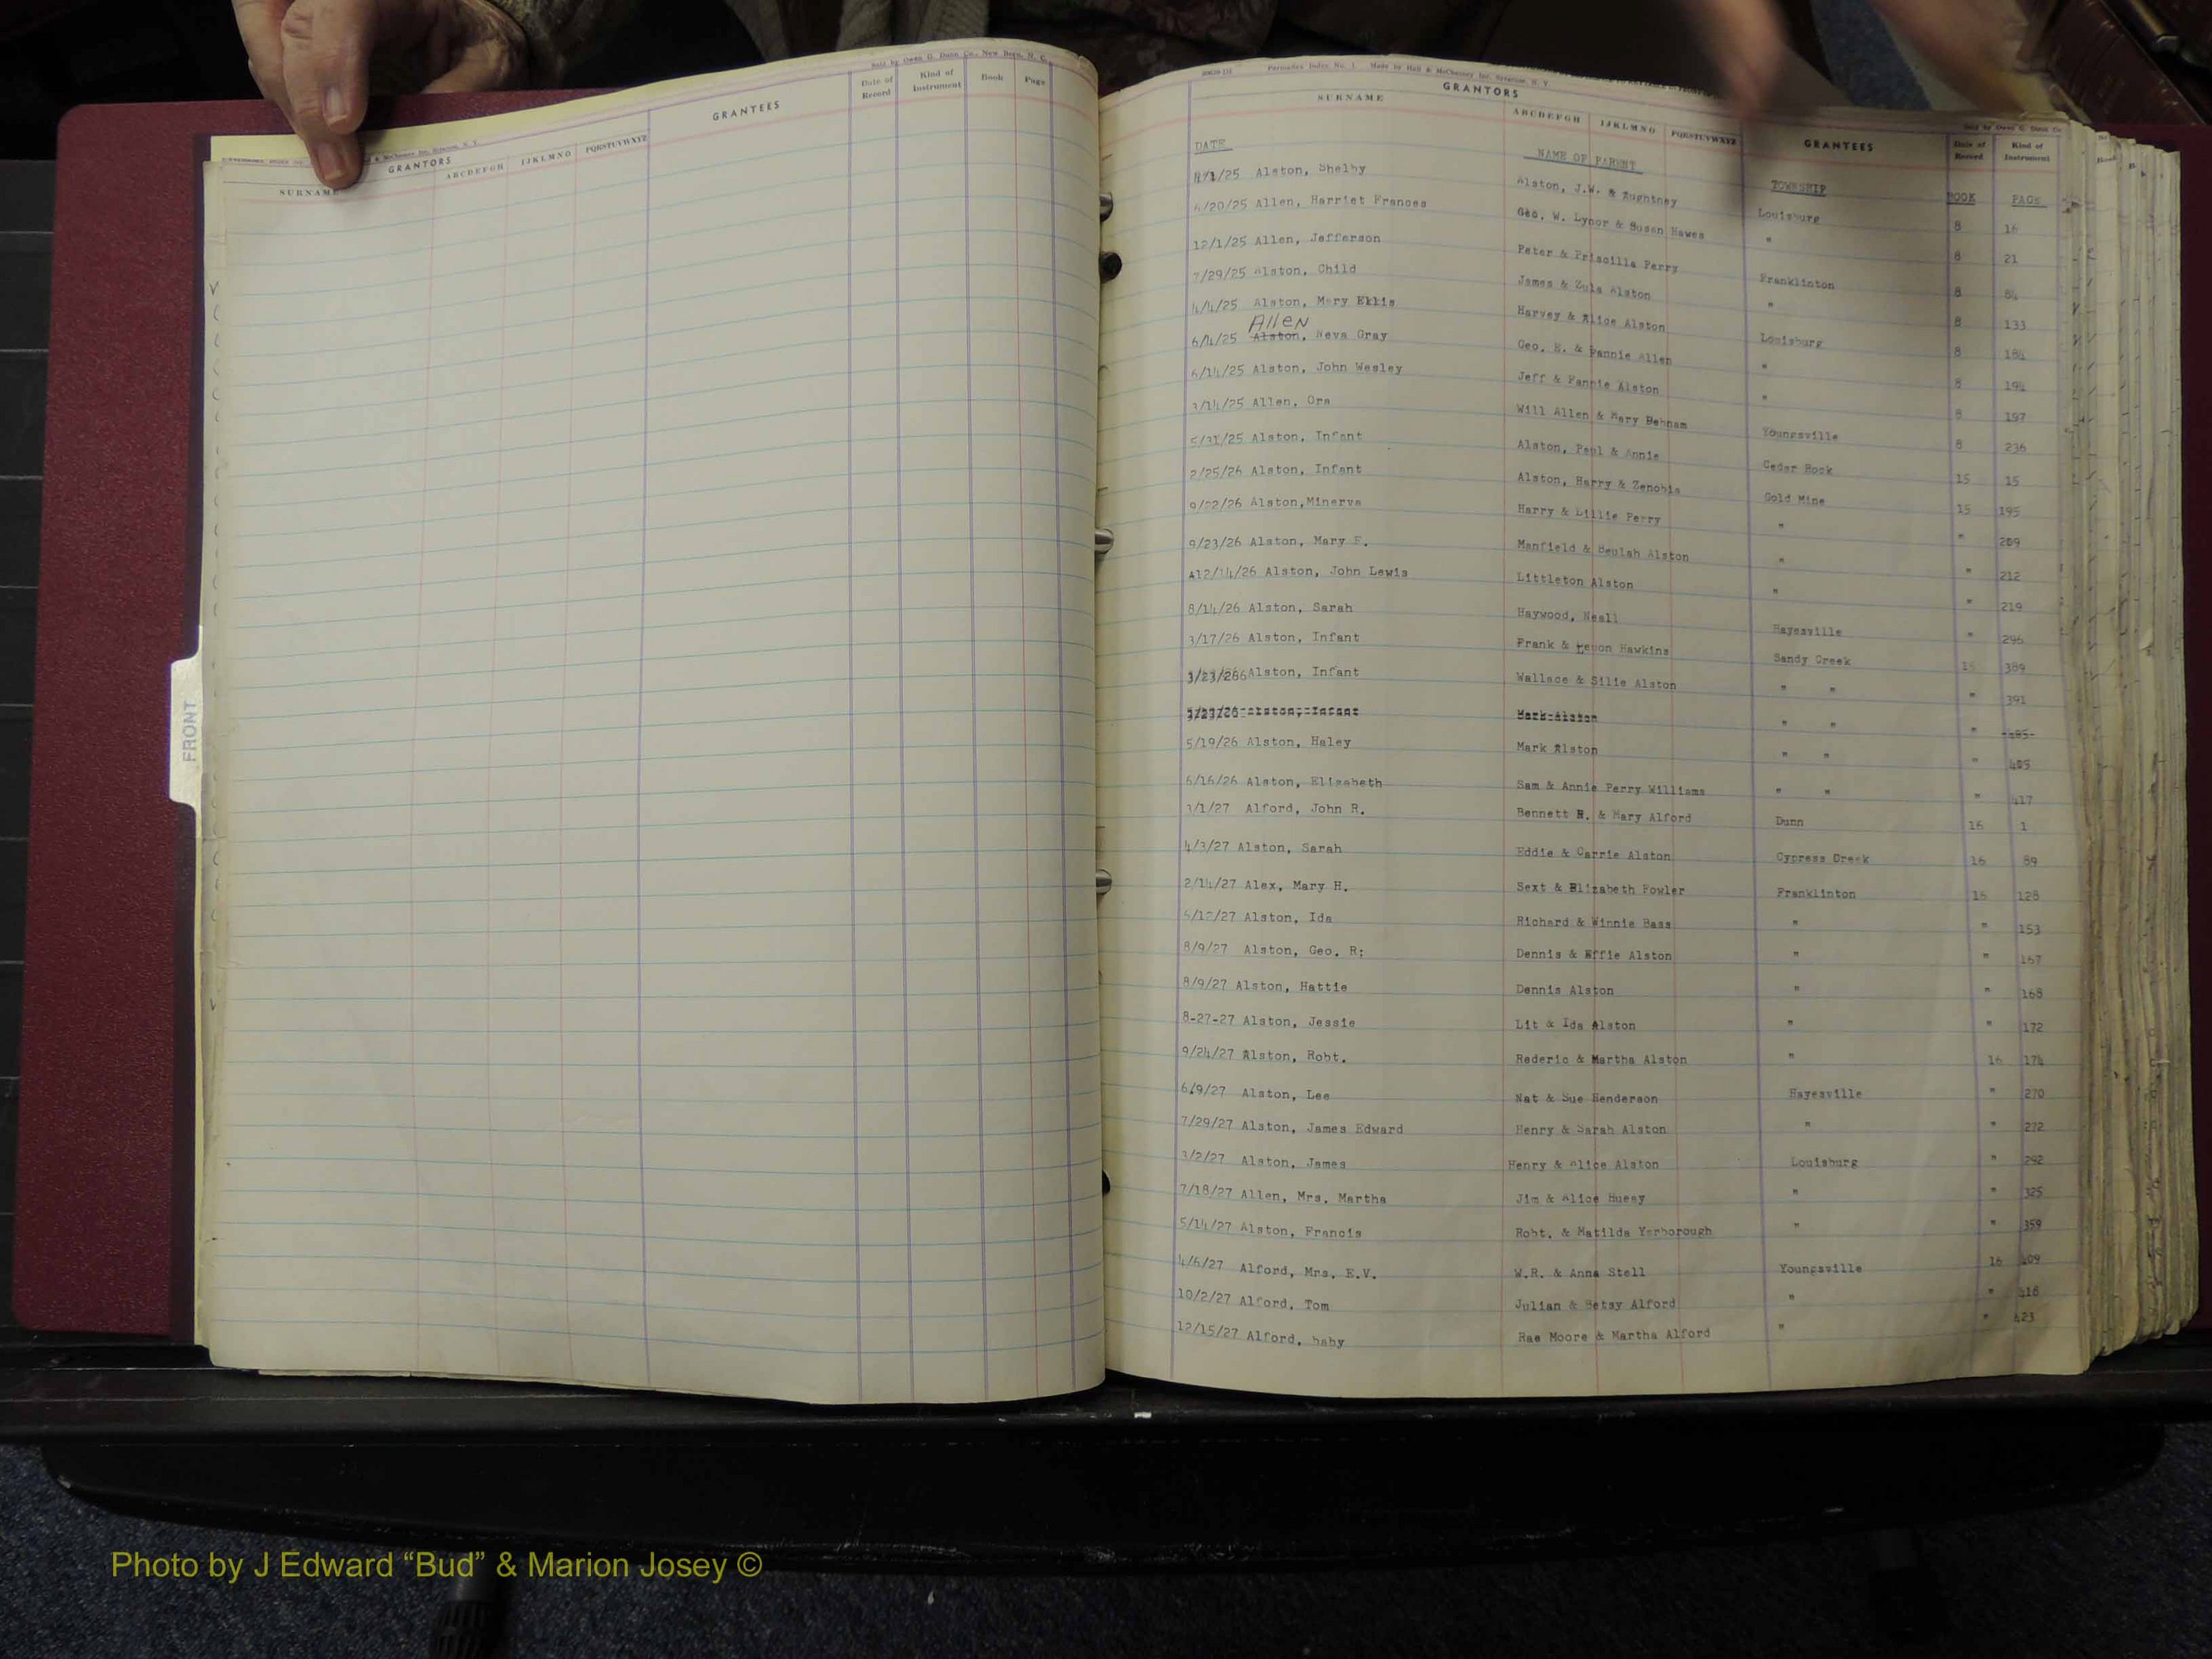 Sold by Owen G. Dunn Co., New Bern, N. C.
GRANTORS
SURNAME
ABCDEFGH IJKLMNO PQRSTUVWXYZ
GRANTEES
Date of Record Kind of Instrument Book Page
FRONT
Permanex Index No. 1 Made by Hall & McChesney Inc. Syracuse, N. Y.
GRANTORS
SURNAME
ABCDEFGH IJKLMNO PQRSTUVWXYZ
GRANTEES
Sold by Owen G. Dunn Co
Date of Record Kind of Instrument
DATE NAME OF PARENT TOWNSHIP BOOK PAGE
/25 Alston, Shelby Alston, J.W. & Louisburg 8 16
6/20/25 Allen, Harriet Frances Geo. W. Lynor & Susan Hawes " 8 21
12/1/25 Allen, Jefferson Peter & Priscilla Perry Franklinton 8 84
7/29/25 Alston, Child James & Zula Alston " 8 133
4/4/25 Alston, Mary Ellis Harvey & Alice Alston Louisburg 8 184
Allen
6/4/25 Alston, Neva Gray Geo. E. & Fannie Allen " 8 194
6/14/25 Alston, John Wesley Jeff & Fannie Alston " 8 197
3/14/25 Allen, Ora Will Allen & Mary Debnam Youngsville 8 236
5/31/25 Alston, Infant Alston, Paul & Annie Cedar Rock 15 15
2/25/26 Alston, Infant Alston, Harry & Zenobia Gold Mine 15 195
9/22/26 Alston,Minerva Harry & Lillie Perry " " 209
9/23/26 Alston, Mary E. Manfield & Beulah Alston " " 212
12/14/26 Alston, John Lewis Littleton Alston " " 219
8/14/26 Alston, Sarah Haywood, Neall Hayesville " 296
3/17/26 Alston, Infant Frank & Hawkins Sandy Creek 15 389
3/23/266 Alston, Infant Wallace & Silie Alston " " " 391
Alston, Infant Mark Alston " " "
5/19/26 Alston, Haley Mark Alston " " " 405
6/16/26 Alston, Elizabeth Sam & Annie Perry Williams " " " 417
3/1/27 Alford, John R. Bennett H. & Mary Alford Dunn 16 1
4/3/27 Alston, Sarah Eddie & Carrie Alston Cypress Creek 16 89
2/14/27 Alex, Mary H. Sext & Elizabeth Fowler Franklinton 16 128
/27 Alston, Ida Richard & Winnie Bass " " 153
8/9/27 Alston, Geo. R; Dennis & Effie Alston " " 167
8/9/27 Alston, Hattie Dennis Alston " " 168
8-27-27 Alston, Jessie Lit & Ida Alston " " 172
9/24/27 Alston, Robt. Rederic & Martha Alston " 16 174
6/9/27 Alston, Lee Nat & Sue Henderson Hayesville " 270
7/29/27 Alston, James Edward Henry & Sarah Alston " " 272
3/2/27 Alston, James Henry & Alice Alston Louisburg " 292
7/18/27 Allen, Mrs. Martha Jim & Alice Huesy " " 325
5/14/27 Alston, Francis Robt. & Matilda Yarborough " " 359
4/6/27 Alford, Mrs. E.V. W.R. & Anna Stell Youngsville 16 409
10/2/27 Alford, Tom Julian & Betsy Alford " " 418
12/15/27 Alford, baby Rae Moore & Martha Alford " " 423
Photo by J Edward “Bud” & Marion Josey ©